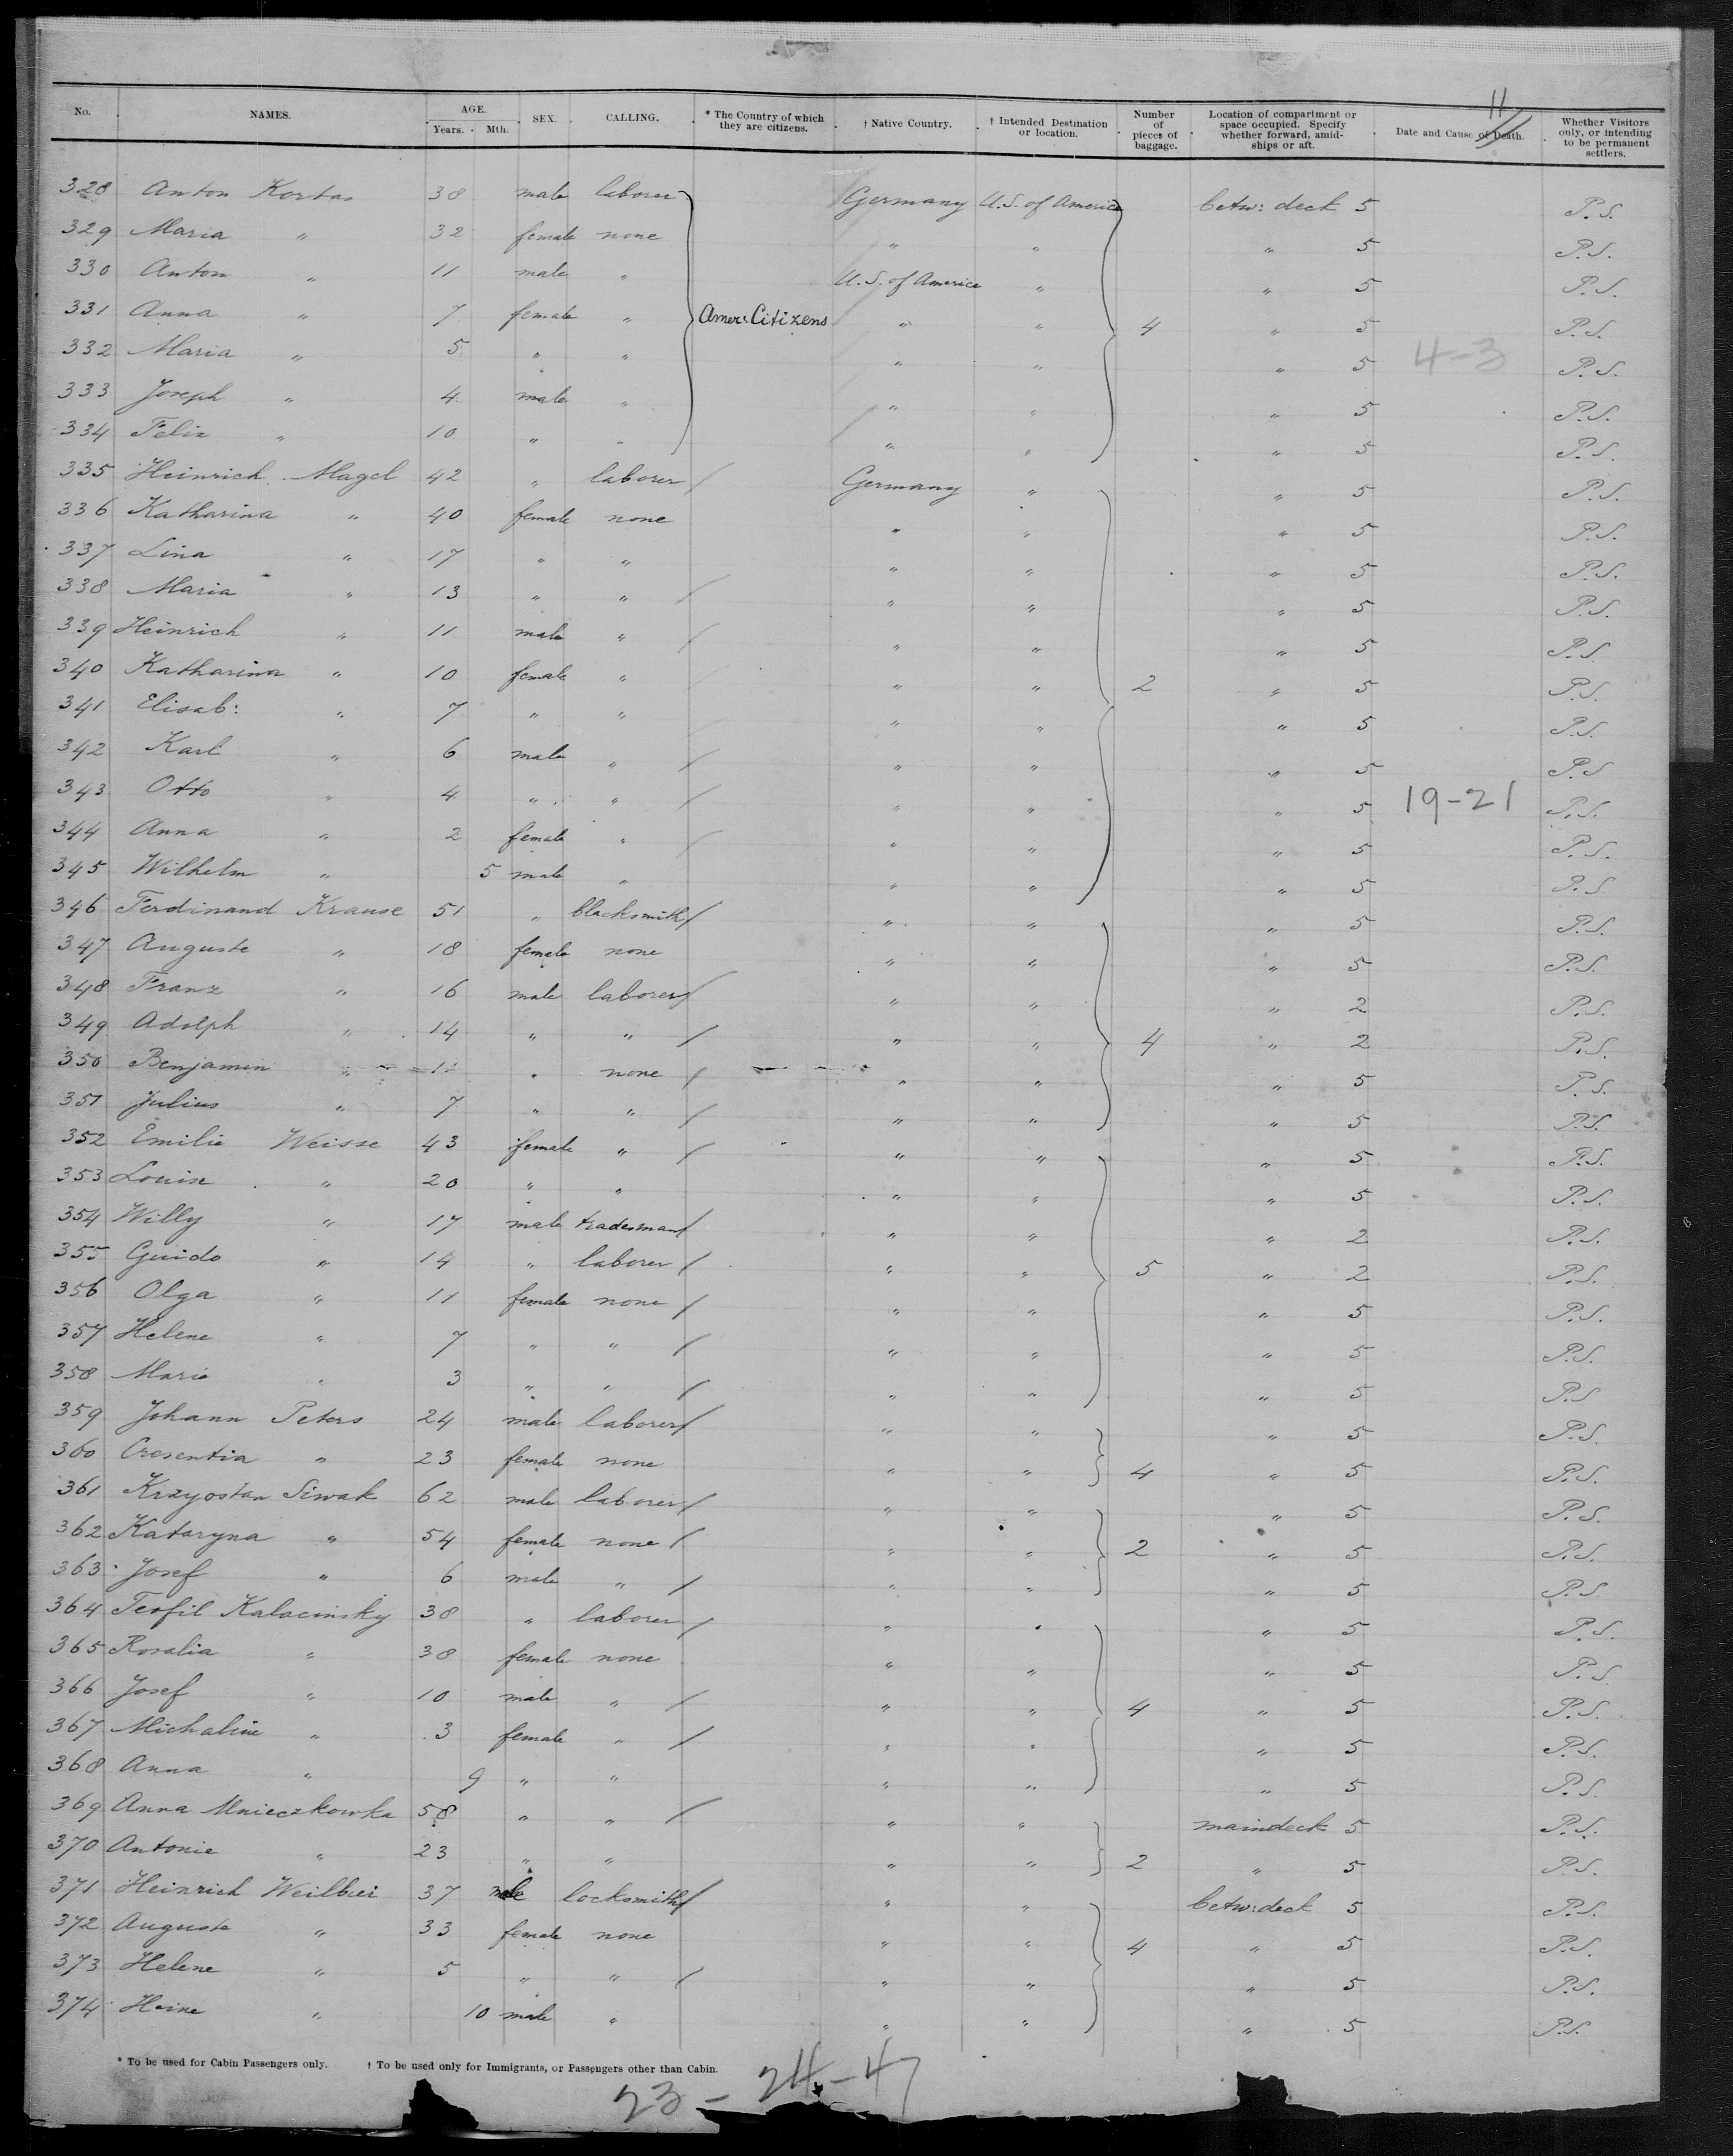 11
No. NAMES. AGE. Years. Mth. SEX. CALLING. * The Country of which they are citizens. † Native Country. † Intended Destination or location. Number of pieces of baggage. Location of compartment or space occupied. Specify whether forward, amidships or aft. Date and Cause of Death. Whether Visitors only, or intending to be permanent settlers.
328 Anton Kortas 38 male laborer Germany U.S. of America betw: deck 5 P.S.
329 Maria " 32 female none " " " 5 P.S.
330 Anton " 11 male " U.S. of America " " 5 P.S.
331 Anna " 7 female " Amer: Citizens " " 4 " 5 P.S.
332 Maria " 5 " " " " " 5 4-3 P.S.
333 Joseph " 4 male " " " " 5 P.S.
334 Felix " 10 " " " " " 5 P.S.
335 Heinrich Magel 42 " laborer / Germany " " 5 P.S.
336 Katharina " 40 female none " " " 5 P.S.
337 Lina " 17 " " " " " 5 P.S.
338 Maria " 13 " " / " " " 5 P.S.
339 Heinrich " 11 male " / " " " 5 P.S.
340 Katharina " 10 female " / " " 2 " 5 P.S.
341 Elisab: " 7 " " / " " " 5 P.S.
342 Karl " 6 male " / " " " 5 P.S
343 Otto " 4 " " / " " " 5 19-21 P.S.
344 Anna " 2 female " / " " " 5 P.S.
345 Wilhelm " 5 male " " " " 5 P.S
346 Ferdinand Krause 51 " blacksmith / " " " 5 P.S.
347 Auguste " 18 female none " " " 5 P.S.
348 Franz " 16 male laborer / " " " 2 P.S.
349 Adolph " 14 " " / " " 4 " 2 P.S.
350 Benjamin " 11 " none / " " " 5 P.S.
351 Julius " 7 " " / " " " 5 P.S.
352 Emilie Weisse 43 female " / " " " 5 P.S.
353 Louise " 20 " " " " " 5 P.S.
354 Willy " 17 male tradesman / " " " 2 P.S.
355 Guido " 14 " laborer / " " 5 " 2 P.S.
356 Olga " 11 female none / " " " 5 P.S.
357 Helene " 7 " " / " " " 5 P.S.
358 Marie " 3 " " / " " " 5 P.S
359 Johann Peters 24 male laborer / " " " 5 P.S.
360 Cresentia " 23 female none " " 4 " 5 P.S.
361 Krzyostan Siwak 62 male laborer / " " " 5 P.S.
362 Kataryna " 54 female none / " " 2 " 5 P.S.
363 Josef " 6 male " / " " " 5 P.S.
364 Teofil Kalacinsky 38 " laborer / " " " 5 P.S.
365 Rosalia " 38 female none " " " 5 P.S.
366 Josef " 10 male " / " " 4 " 5 P.S.
367 Michaline " 3 female " / " " " 5 P.S.
368 Anna " 9 " " " " " 5 P.S.
369 Anna Mnieczkowka 58 " " / " " maindeck 5 P.S.
370 Antonie " 23 " " " " 2 " 5 P.S.
371 Heinrich Weilbier 37 male locksmith / " " betw: deck 5 P.S.
372 Auguste " 33 female none " " 4 " 5 P.S.
373 Helene " 5 " " / " " " 5 P.S.
374 Heine " 10 male " " " " 5 P.S.
* To be used for Cabin Passengers only. † To be used only for Immigrants, or Passengers other than Cabin.
23-24-47